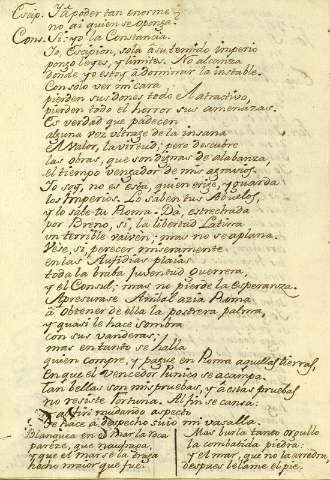 Escip. Y à poder tan enorme
no ai quien se oponga?
Cons. Si: yo la Constancia.
Io, Escipion, sola à su temido imperio
pongo leyes, y limites. No alcanza
donde yo estoy à dominar la instable.
Con solo ver mi cara,
pierden sus dones todo el atractivo,
pierden todo el horror sus amenazas.
Es verdad que padecen
alguna vez ultrage de la insana
el valor, la virtud; pero descubre
las obras, que son dignas de alabanza,
el tiempo vengador de mis agravios.
Io soy, no es esta, quien erige, y guarda
los Imperios. Lo saben tus Abuelos,
y lo sabe tu Roma. Da, estrechada
por Breno, si, la libertad Latina
un terrible vaiven; mas no se aplana.
Vese, si, perecer miseramente
en las Aufidias plaias
toda la braba juventud guerrera,
y el Consul; mas no pierde la esperanza.
Apresurase Anibal azia Roma
à obtener de ella la postrera palma,
y quasi le hace sombra
con sus vanderas;
mas en tanto se halla
quien compre, y pague en Roma aquellas tierras,
en que el Vencedor Punico se acampa.
Tan bellas son mis pruebas, y à estas pruebas
no resiste Fortuna. Al fin se cansa:
y mudando aspecto
se hace à despecho suio mi vasalla.
Blanquea en el Mar la roca
pareze, que naufraga,
y que el mar se la traga
hecho maior que fue.
Mas burla tanto orgullo
la combatida piedra:
y el mar, que no la arredra,
despues besame el pie.